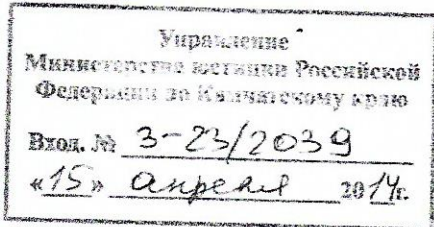 Управление
Министерства юстиции Российской
Федерации по Камчатскому краю
Вход. № 3-23/2039
«15» апреля 2014г.